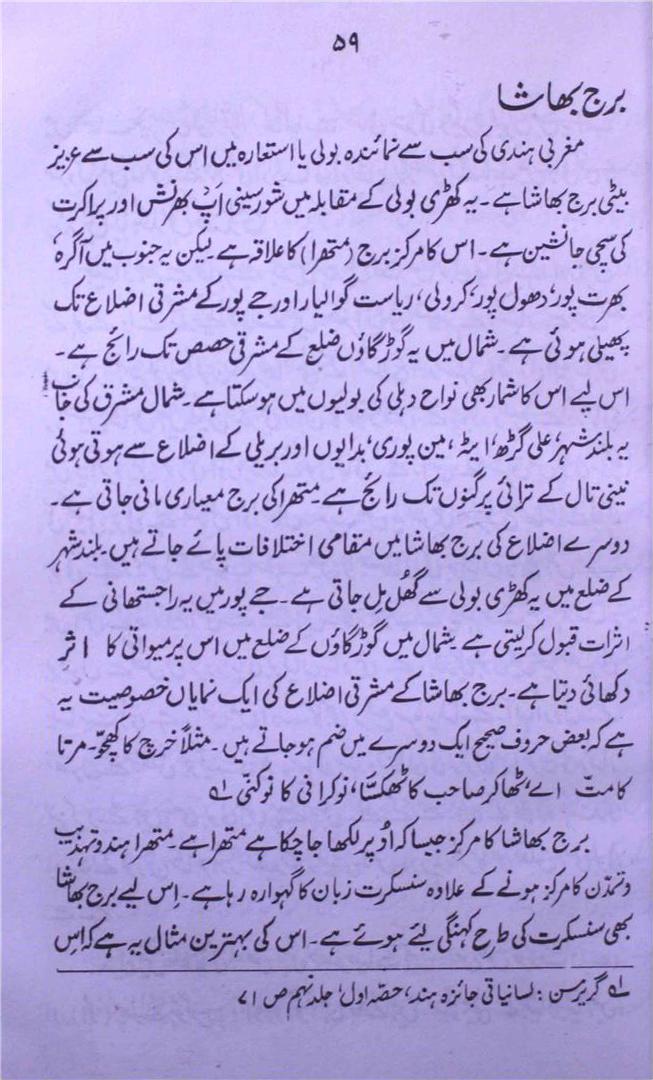 ۵۹
برج بھاشا
مغربی ہندی کی سب سے نمائندہ بولی یا استعارہ میں اس کی سب سے عزیز
بیٹی برج بھاشا ہے ۔ یہ کھڑی بولی کے مقابلہ میں شور سینی اَپْ بھرنش اور پراکرت
کی سچی جانشین ہے ۔ اس کا مرکز برج (متھرا) کا علاقہ ہے ۔ لیکن یہ جنوب میں آگرہ،
بھرت پور، دھول پور، کرولی، ریاست گوالیار اور جے پور کے مشرقی اضلاع تک
پھیلی ہوئی ہے ۔ شمال میں یہ گوڑ گاؤں ضلع کے مشرقی حصص تک رائج ہے ۔
اس لیے اس کا شمار بھی نواح دہلی کی بولیوں میں ہو سکتا ہے ۔ شمال مشرق کی جانب
یہ بلند شہر، علی گڑھ، ایٹہ، مین پوری، بدایوں اور بریلی کے اضلاع سے ہوتی ہوئی
نینی تال کے ترائی پرگنوں تک رائج ہے ۔ متھرا کی برج معیاری مانی جاتی ہے ۔
دوسرے اضلاع کی برج بھاشا میں مقامی اختلافات پائے جاتے ہیں ۔ بلند شہر
کے ضلع میں یہ کھڑی بولی سے گھُل مِل جاتی ہے ۔ جے پور میں یہ راجستھانی کے
اثرات قبول کر لیتی ہے ۔ شمال میں گوڑ گاؤں کے ضلع میں اس پر میواتی کا اثر
دکھائی دیتا ہے ۔ برج بھاشا کے مشرقی اضلاع کی ایک نمایاں خصوصیت یہ
ہے کہ بعض حروف صحیح ایک دوسرے میں ضم ہو جاتے ہیں ۔ مثلاً خرچ کا کھچّو ۔ مرتا
کا متّ اے، ٹھاکر صاحب کا ٹھکسّا، نوکرانی کا نوکنّی ؂۱
برج بھاشا کا مرکز جیسا کہ اوُپر لکھا جا چکا ہے متھرا ہے ۔ متھرا ہندو تہذیب
و تمدّن کا مرکز ہونے کے علاوہ سنسکرت زبان کا گہوارہ رہا ہے ۔ اِس لیے برج بھاشا
بھی سنسکرت کی طرح کہنگی لیئے ہوئے ہے ۔ اس کی بہترین مثال یہ ہے کہ اِس
؂۱ گریرسن : لسانیاتی جائزہ ہند، حصّہ اول، جلد نہم ص ۷۱